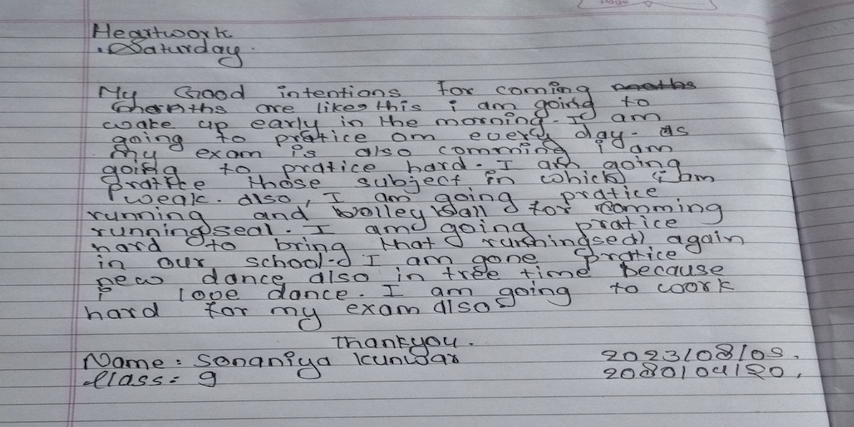 Heartwork
.Saturday.
My Good intentions for coming
months are likes this i am going to
wake up early in the morning. I am
going to pratice om every day. As
my exam is also comming i am
going to pratice hard. I am going
pratice those subject in which i am
weak. also, I am going pratice
running and volleyball for comming
runningseal. I amd going pratice
hard to bring that runningseal again
in our school. I am gone pratice
new dance also in free time because
i love dance. I am going to work
hard for my exam also
Thankyou.
Name: Sonaniya Kunwar 2023/08/05.
Class: 9 2080/04/20.